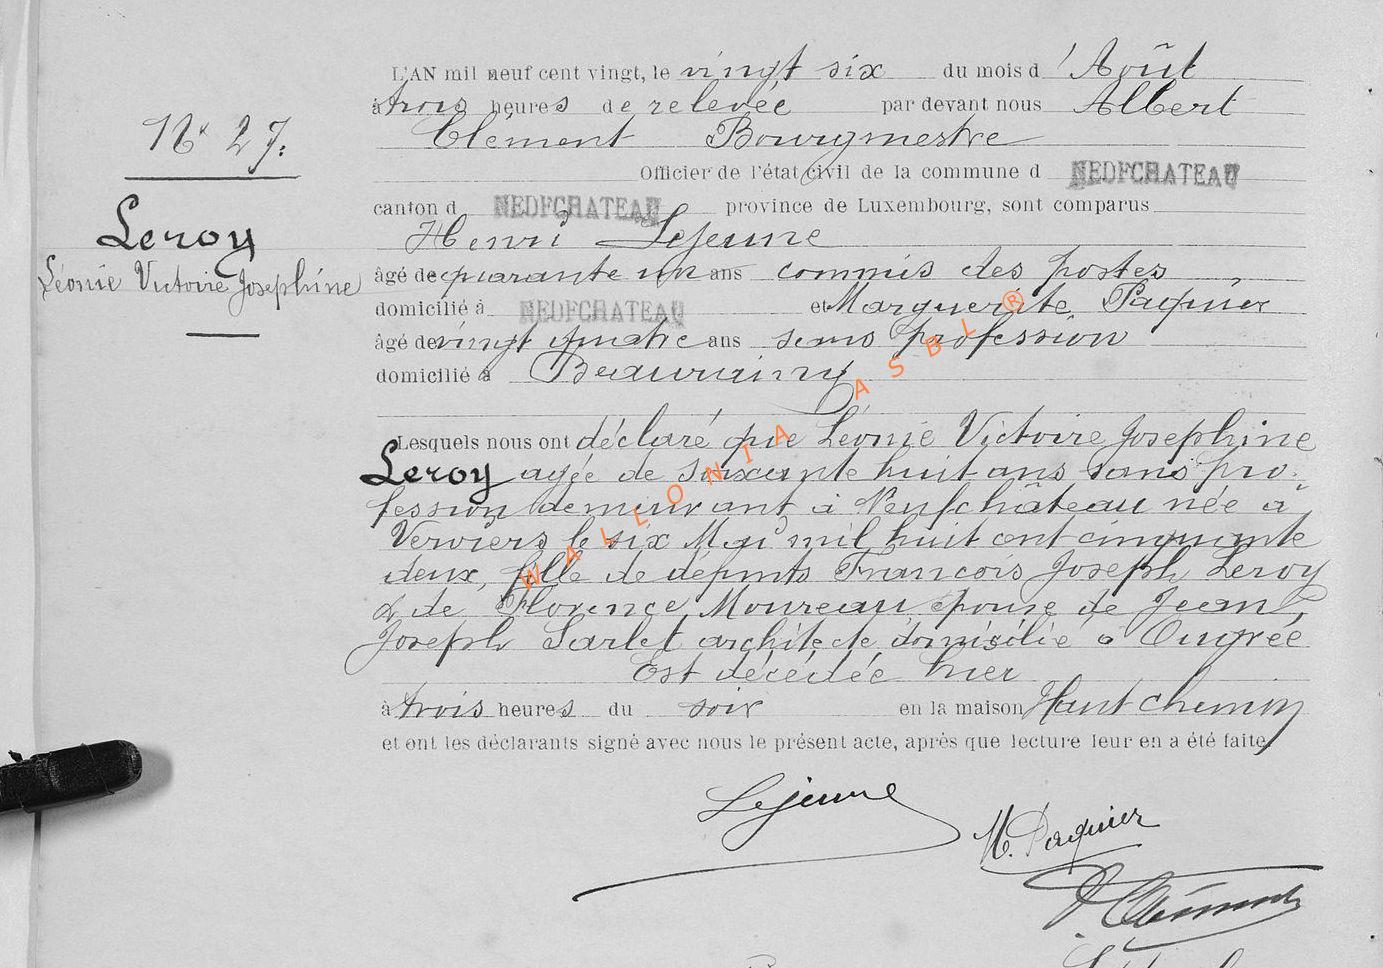 N° 27.
Leroy
Léonie Victoire Josephine
L'AN mil neuf cent vingt, le vingt six du mois d'Août
à trois heures de relevée par devant nous Albert
Clément Bourgmestre
Officier de l'état civil de la commune d NEUFCHATEAU
canton d NEUFCHATEAU province de Luxembourg, sont comparus
Henri Lejeune
âgé de quarante un ans commis des postes
domicilié à NEUFCHATEAU et Marguerite Paquier
âgé de vingt quatre ans sans profession
domicilié à
Lesquels nous ont déclaré que Léonie Victoire Josephine
Leroy agée de soixante huit ans sans pro-
fession demeurant à Neufchâteau née à
Verviers le six Mai mil huit cent cinquante
deux, fille de défunts Francois Joseph Leroy
& de Florence Moureau épouse de Jean
Joseph Sarlet architecte domicilié à Ougrée
Est décédée hier
à trois heures du soir en la maison Haut chemin
et ont les déclarants signé avec nous le présent acte, après que lecture leur en a été faite.
Lejeune
M. Paquier
Clément
WALLONIA ASBL ®